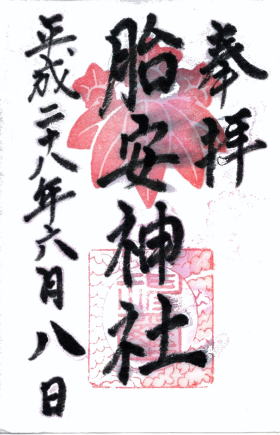 奉拝
胎安神社
平成二十八年六月八日